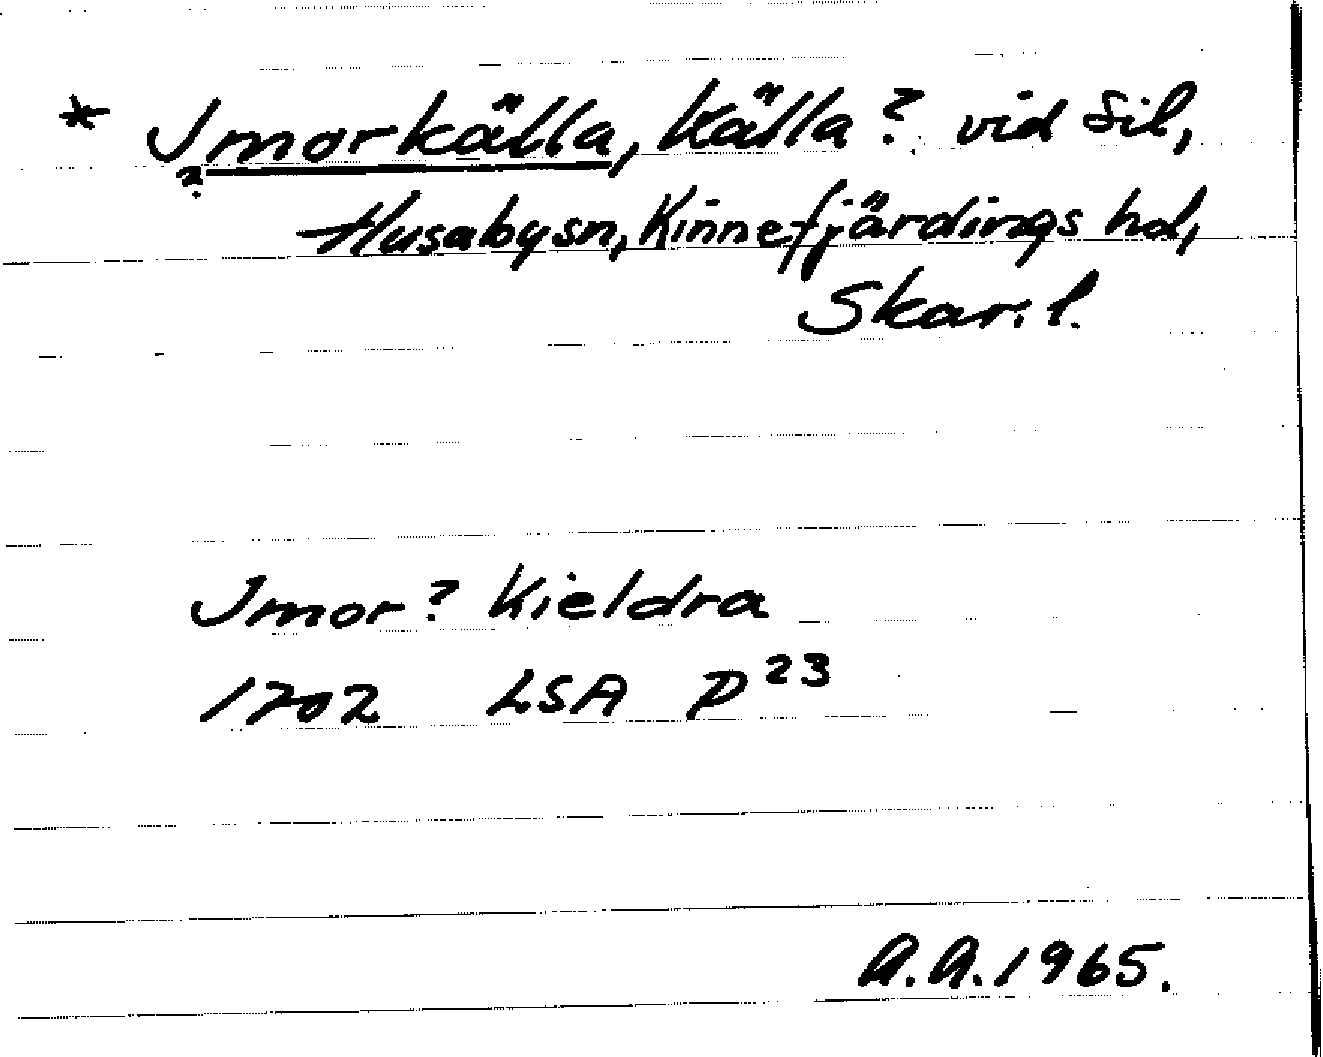 * Jmorkälla, källa? vid Sil,
?
Husabysn, Kinnefjärdings hd,
Skar. l.
Jmor? Kieldra
1702 LSA P 23
A.A. 1965.